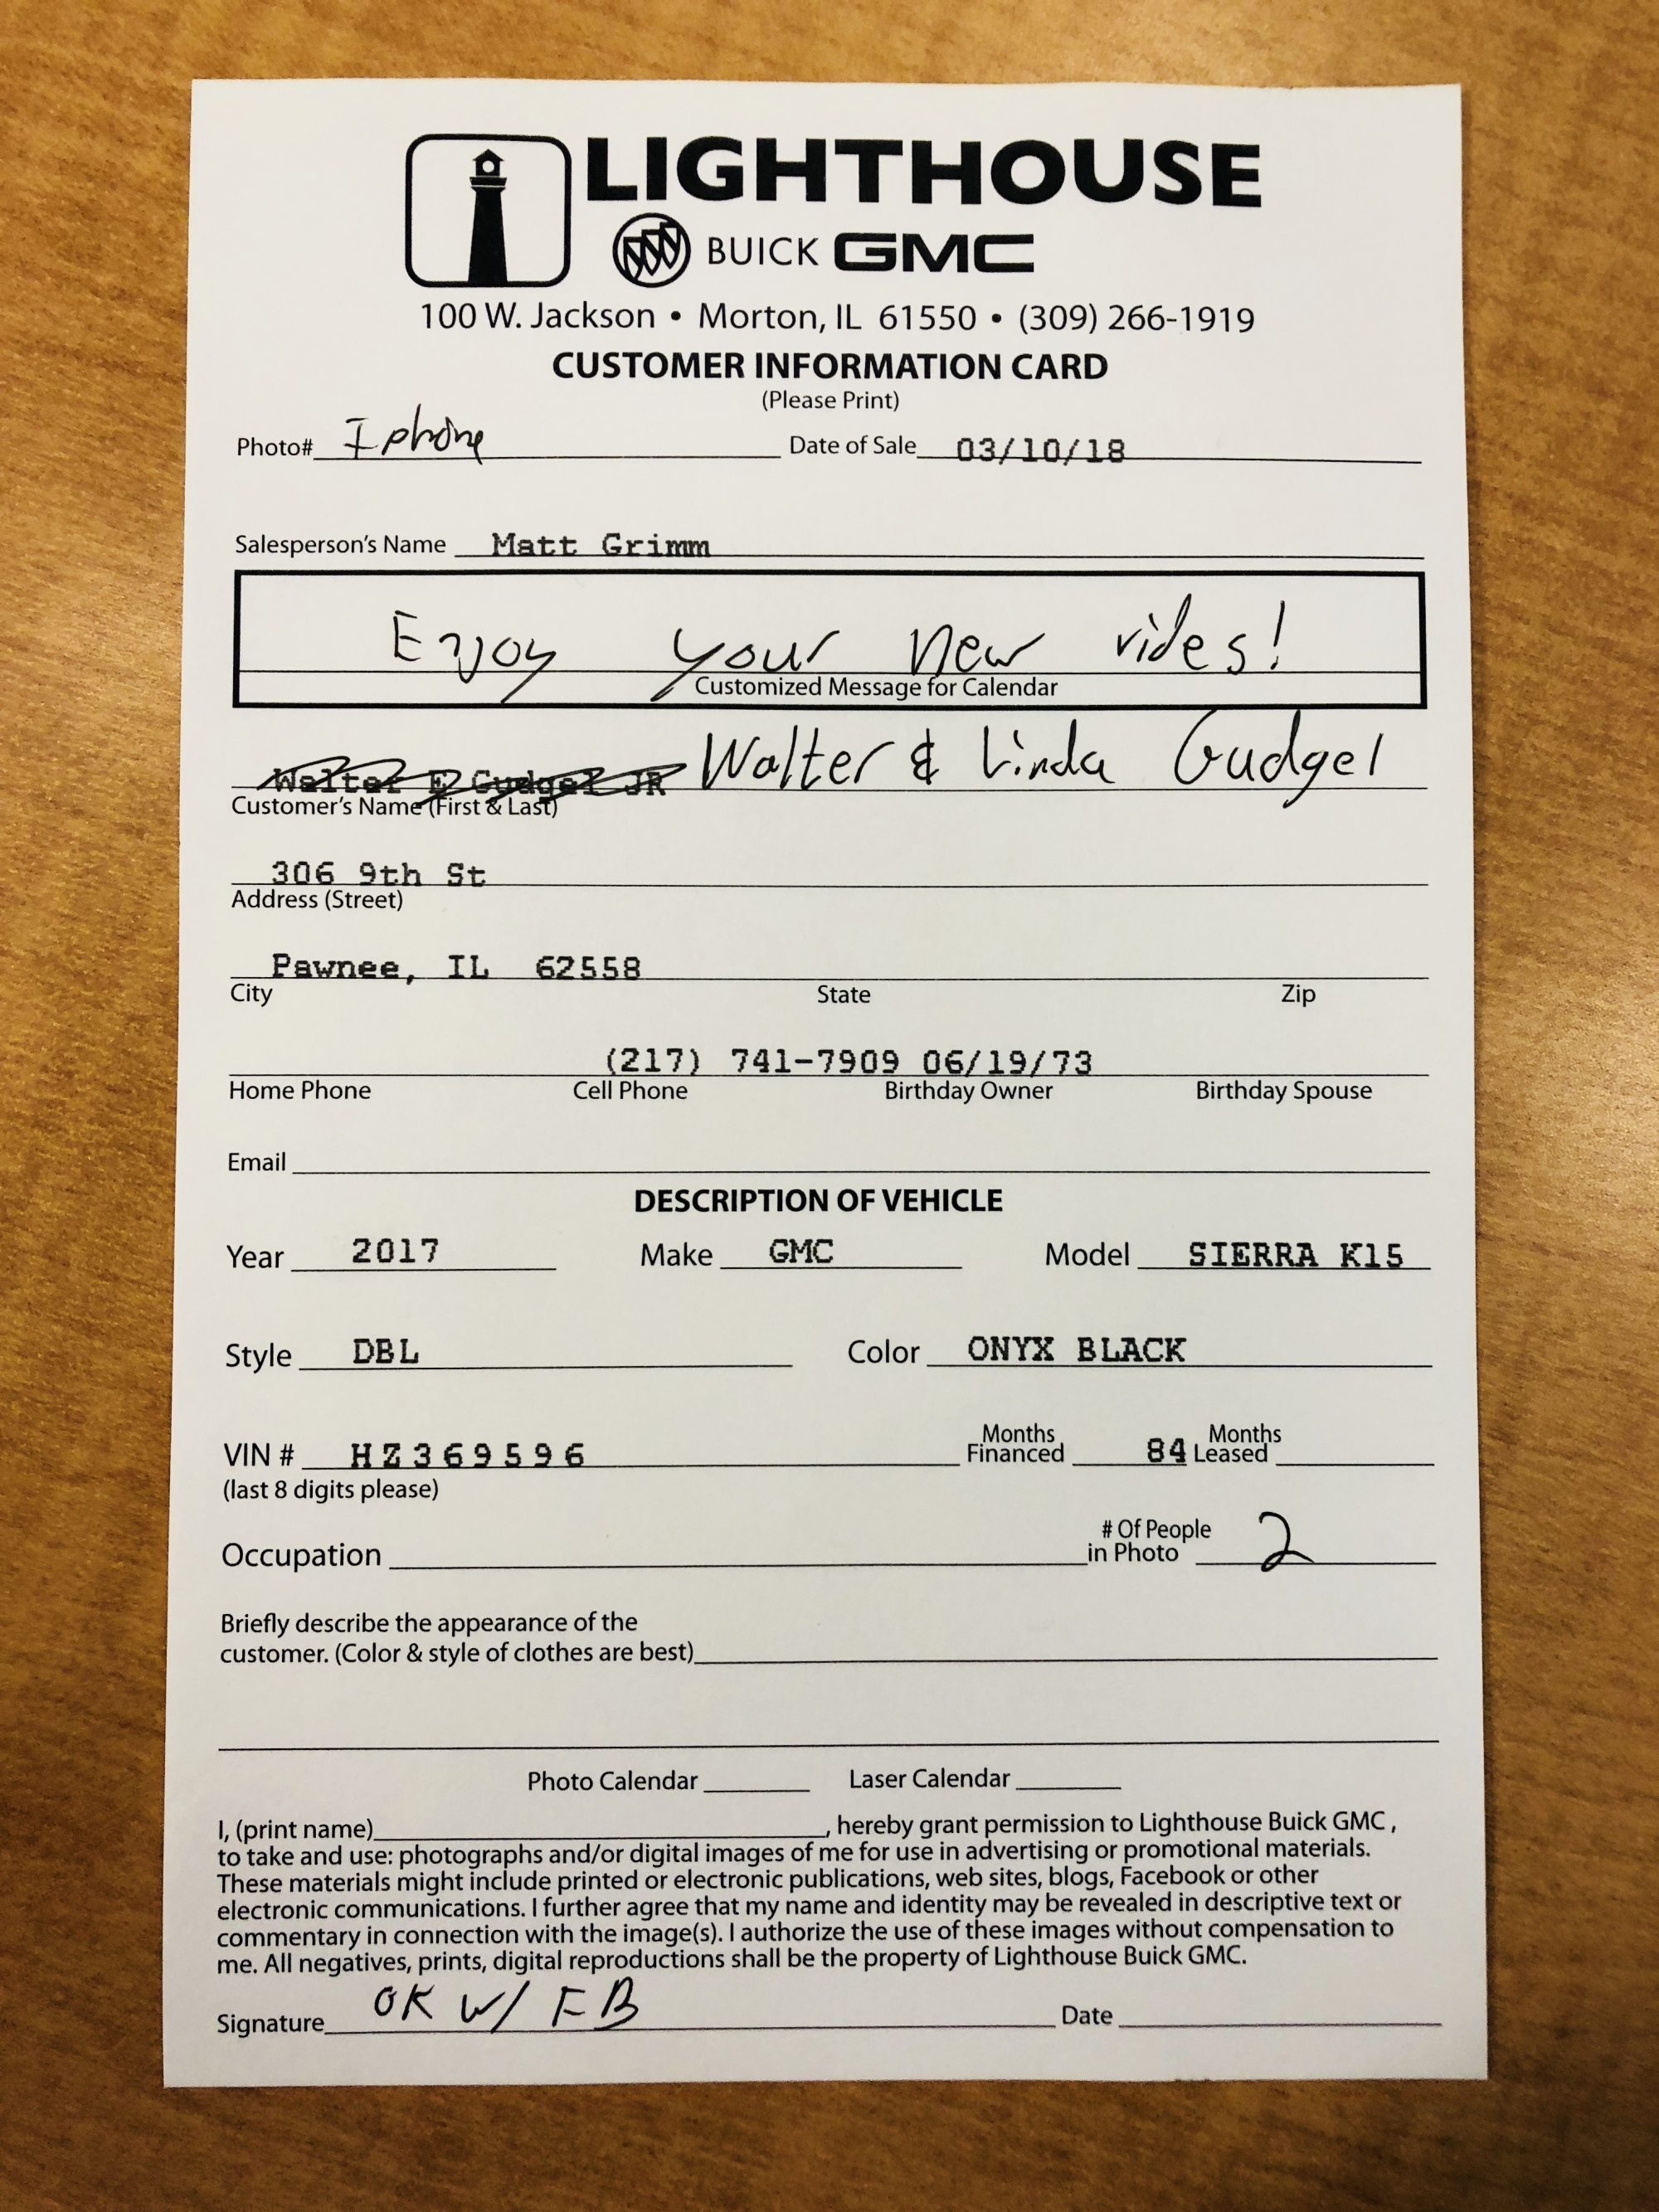 LIGHTHOUSE
BUICK GMC
100 W. Jackson • Morton, IL 61550 • (309) 266-1919
CUSTOMER INFORMATION CARD
(Please Print)
Photo# Iphone Date of Sale 03/10/18
Salesperson's Name Matt Grimm
Enjoy your new rides!
Customized Message for Calendar
Walter E Gudgel JR Walter & Linda Gudgel
Customer's Name (First & Last)
306 9th St
Address (Street)
Pawnee, IL 62558
City State Zip
(217) 741-7909 06/19/73
Home Phone Cell Phone Birthday Owner Birthday Spouse
Email
DESCRIPTION OF VEHICLE
Year 2017 Make GMC Model SIERRA K15
Style DBL Color ONYX BLACK
VIN # HZ369596 Months Financed 84 Months Leased
(last 8 digits please)
Occupation # Of People in Photo 2
Briefly describe the appearance of the
customer. (Color & style of clothes are best)
Photo Calendar Laser Calendar
I, (print name) , hereby grant permission to Lighthouse Buick GMC ,
to take and use: photographs and/or digital images of me for use in advertising or promotional materials.
These materials might include printed or electronic publications, web sites, blogs, Facebook or other
electronic communications. I further agree that my name and identity may be revealed in descriptive text or
commentary in connection with the image(s). I authorize the use of these images without compensation to
me. All negatives, prints, digital reproductions shall be the property of Lighthouse Buick GMC.
Signature OK W/ FB Date